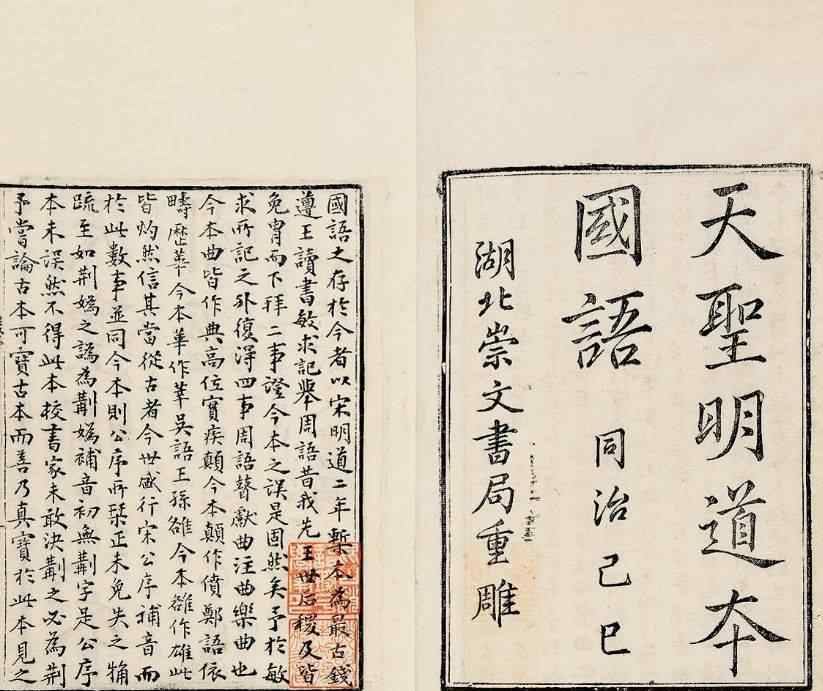 天聖明道本
國語 同治己巳
湖北崇文書局重雕
國語之存於今者以宋明道二年槧本為最古錢
遵王讀書敏求記舉周語昔我先王世后稷及皆
免冑而下拜二事證今本之誤是固然矣予於敏
求所記之外復得四事周語瞽獻曲注曲樂曲也
今本曲皆作典高位實疾顛今本顛作僨鄭語依
疇歷華今本華作莘吳語王孫雒今本雒作雄此
皆灼然信其當從古者今世盛行宋公序補音而
於此數事並同今本則公序所栞正未免失之觕
疏至如荆媯之譌為媯補音初無字是公序
本未誤然不得此本校書家未敢決之必為荆
予嘗論古本可寶古本而善乃真寶於此本見之